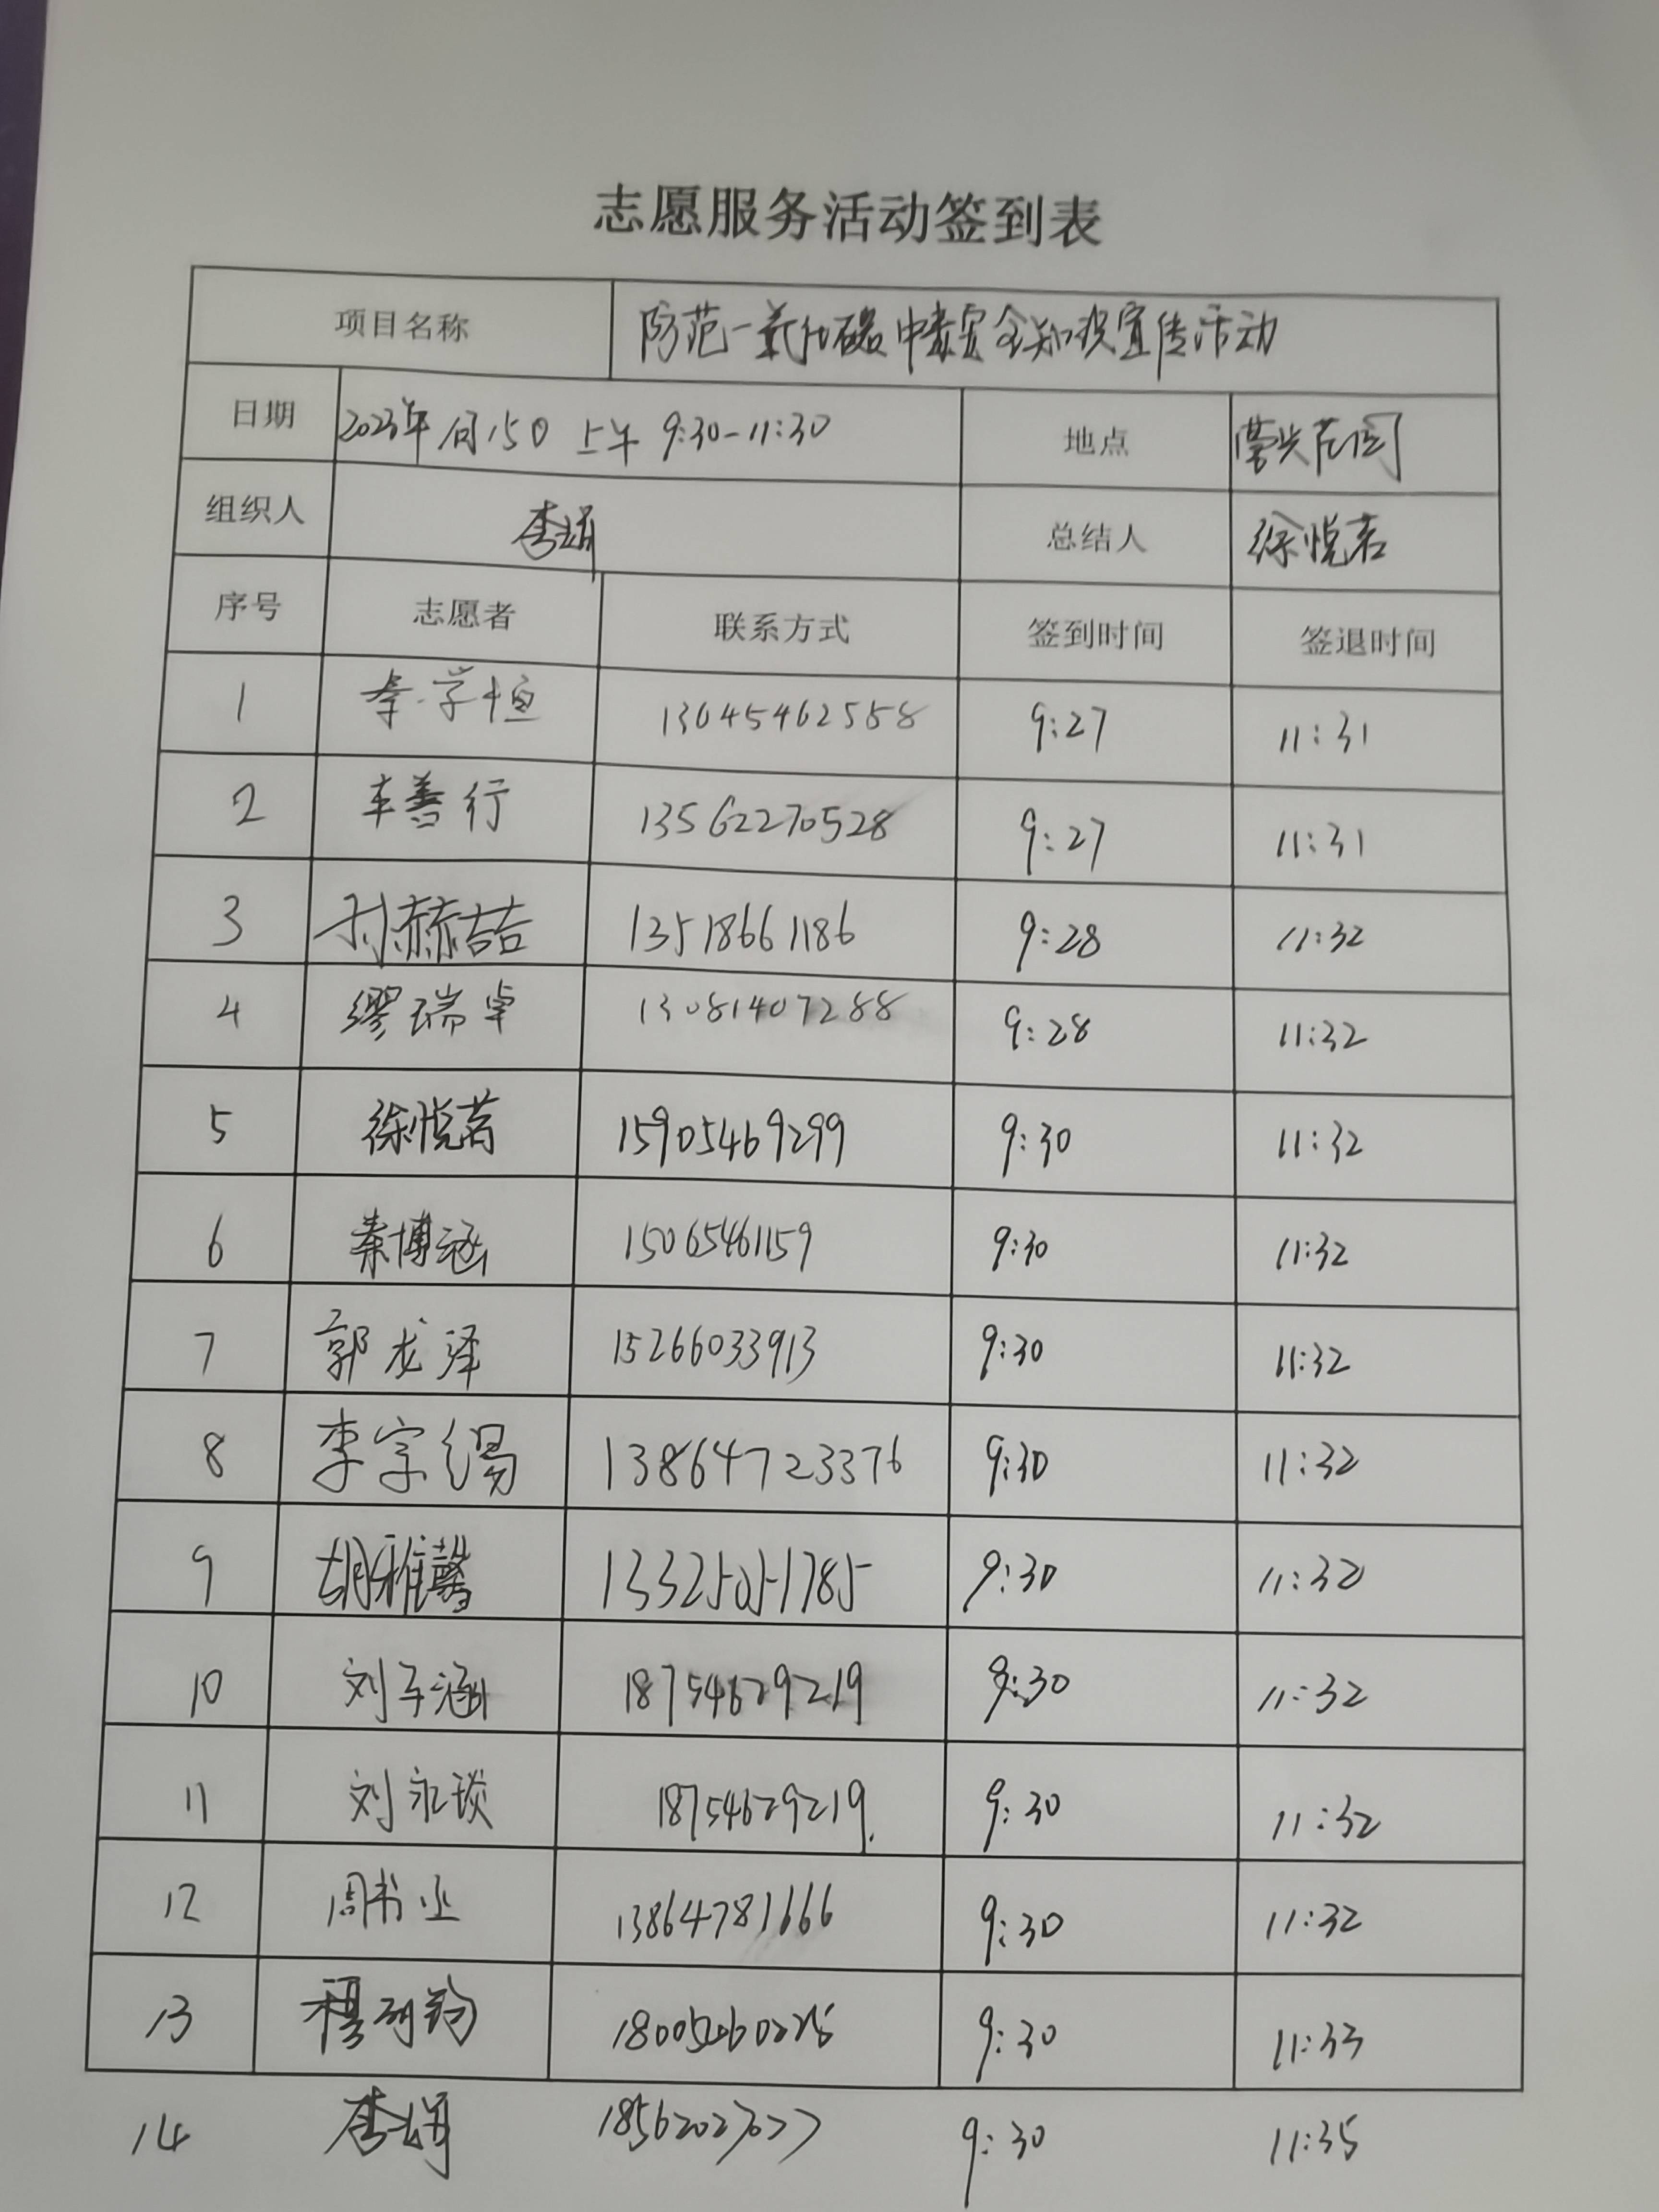 志愿服务活动签到表
项目名称 防范一氧化碳中毒安全知识宣传活动
日期 2023年 1月15日 上午 9:30-11:30 地点
组织人 李娟 总结人 徐悦茗
序号 志愿者 联系方式 签到时间 签退时间
1 李学恒 13645462558 9:27 11:31
2 车善行 13562270528 9:27 11:31
3 刘赫喆 13518661186 9:28 11:32
4 缪瑞卓 13081407288 9:28 11:32
5 徐悦茗 15905469299 9:30 11:32
6 秦博涵 15065461159 9:30 11:32
7 郭龙泽 15266033913 9:30 11:32
8 李字 13864723376 9:30 11:32
9 胡雅馨 13325051785 9:30 11:32
10 刘子涵 18754679219 9:30 11:32
11 刘永琰 18754679219. 9:30 11:32
12 周书 13864781666 9:30 11:32
13 9:30 11:33
14 李娟 18562027027 9:30 11:35